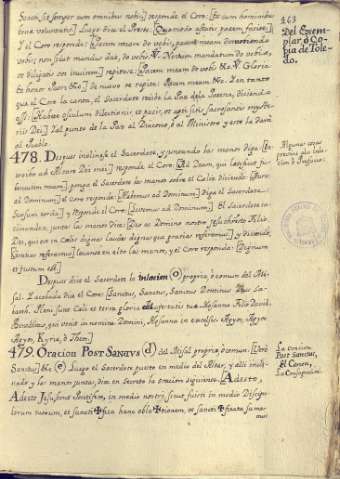 Sancti sit semper cum omnibus nobis] responde el Coro: [Et cum hominibus
bonæ voluntatis] Luego dice el Preste: [Quomodo astatis pacem facite]
Y el Coro responde: [Pacem meam do vobis, pacem meam commendo
vobis; non sicut mundus dat, do vobis. V. Novum mandatum do vobis,
ut diligatis vos invicem] repitese: [Pacem meam do vobis &c. V. Gloria
et honor Patri &c.] de nuevo se repite: [Pacem meam &c. Y en tanto
que el Coro la canta, el Sacerdote recibe la Paz de la Patena, diciendo
assi: [Habete osculum dilectionis, et pacis, ut apti sitis sacrosanctis myste-
riis Dei] Y al punto da la Paz al Diacono, o al Ministro y este la dara
al Pueblo.
478. Despues inclinase el Sacerdote, y juntando las manos diga [In-
troibo ad Altare Dei mei] responde el Coro: [Ad Deum, qui lætificat ju-
ventutem meam] ponga el Sacerdote las manos sobre el Caliz diciendo: [Aures
ad Dominum] el coro responde: [Habemus ad Dominum] Diga el Sacerdote
Sursum corda] y responde el Coro: [Levemus ad Dominum] El Sacerdote in-
clinandose, juntas las manos dice: [Deo ac Domino nostro Jesu christo Filio
Dei, qui est in cœlis dignas laudes dignas que gratias referamus] y diciendo,
[gratias referamus] levanta en alto las manos, y el Coro responde: [Dignum
et justum est]
Despues dice el Sacerdote la Inlacion (o) propria, o comun del Mi-
sal. Y acabada dice el Coro: [Sanctus, Sanctus, Sanctus Dominus Deus Sa-
baoth. Pleni sunt Cæli et terra gloria majestatis tuæ. Hosanna Filio David.
Benedictus, qui venit in nomine Domini, Hosanna in excelsis: Agyos, Agyos
Agyos, Kyrie, o Theos]
479. Oracion Post Sanctus (d) del Misal propria, o comun. [Vere
Sanctus] &c (e) Luego el Sacerdote puesto en medio del Altar, y alli incli-
nado, y las manos juntas, dira en Secreto la oracion siguiente. [Adesto,
Adesto Jesu, bone Pontifex, in medio nostri, sicut fuisti in medio Discipu-
lorum tuorum, et sancti✠fica hanc obla✠tionem, ut sancti✠ficata suma-
mus
163
Del Exem-
plar, o Co-
pia de Tole-
do.
La oracion
Post Sanctus,
el Canon,
La Consagracion.